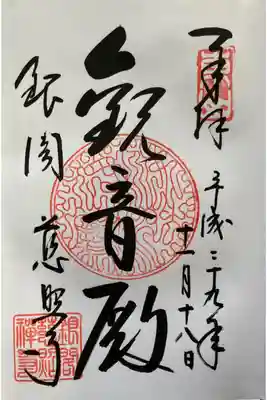 奉拝
平成二十九年
十一月十八日
観音殿
銀閣 慈照寺
銀閣
慈照
禪寺